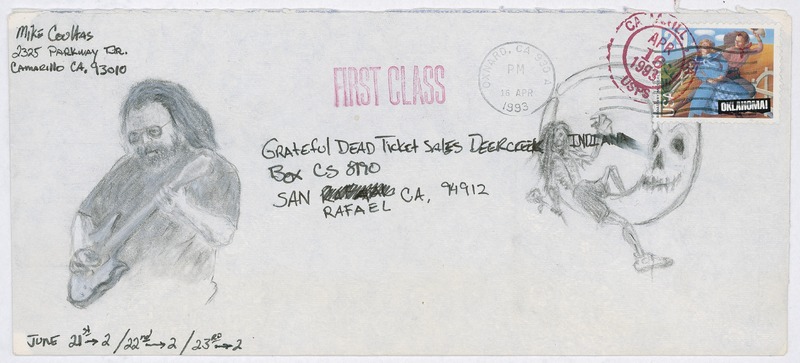 Mike Coultas
2325 PARKWAY DR.
CAMARILLO CA. 93010
FIRST CLASS
OXNARD, CA 930
PM
18 APR
1993
CA
APR
18
1993
USPS
OKLAHOMA!
GRATEFUL DEAD TICKET SALES DEERCREEK INDIANA
BOX CS 8190
SAN CA, 94912
RAFAEL
JUNE 21st→2/22nd→2/23rd→2